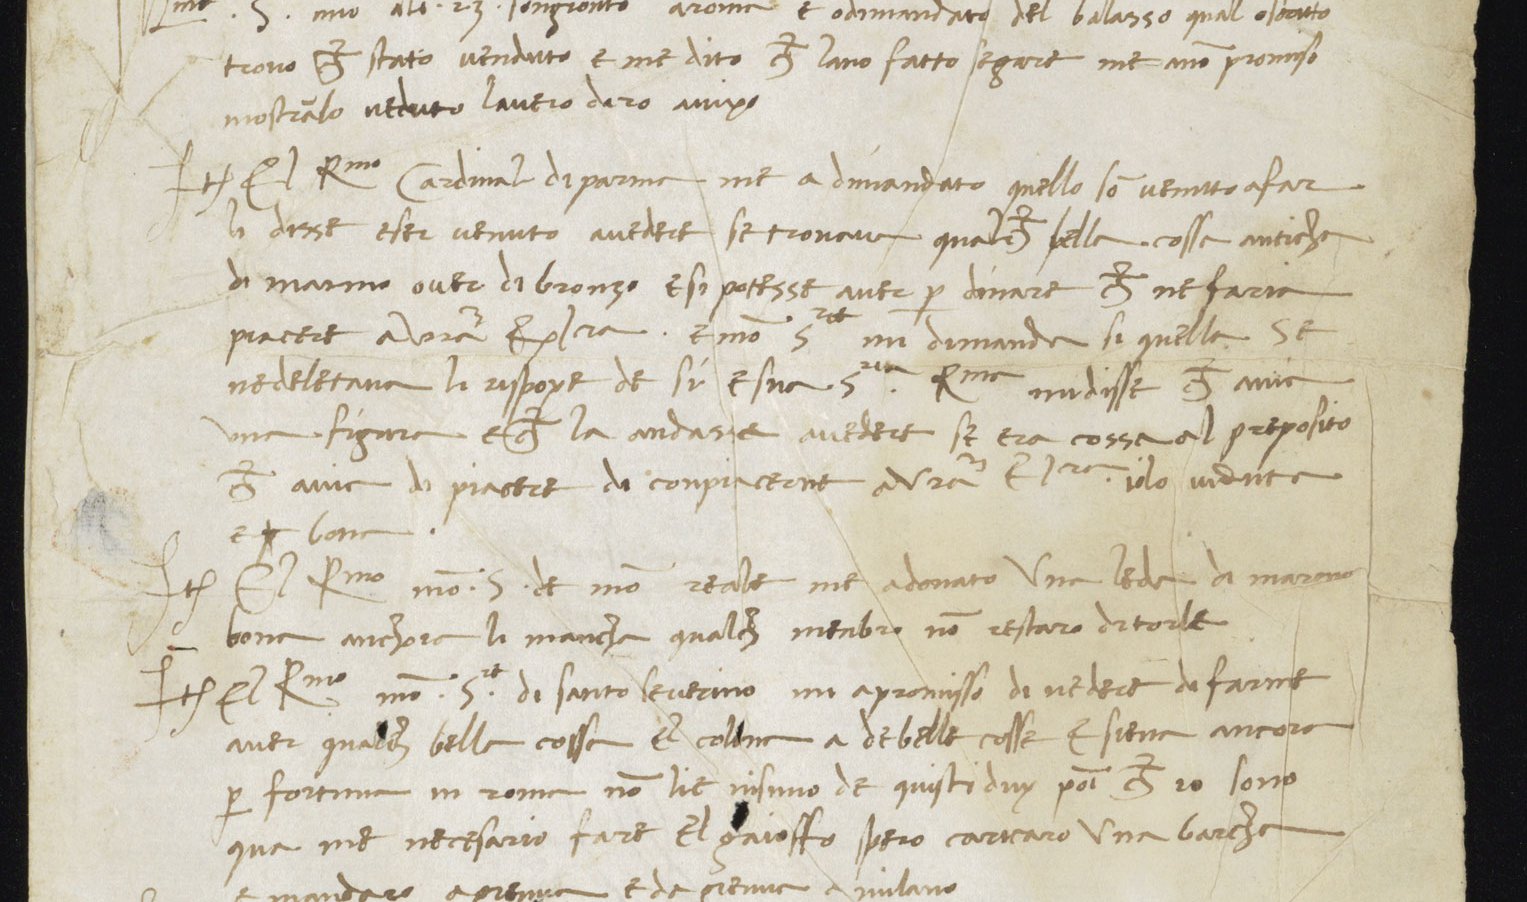 Ill.mo S. mio ali .23. sonzonto a roma e o dimandato del balasso qual o souto
trovo che stato venduto e me dito che lano fatto segare me ano promiso
mostralo veduto lavero daro avixo
Itē El R.mo Cardinal di parma me a dimandato quello sō venuto a far
li disse eser venuto avedere se trovava qualche bella cossa anticha
di marmo over di bronzo e si potesse aver p dinare che ne faria
piacere a Vra Exl.cia . e mō S.re mi dimanda si quella se
nedeletava li rispoxe de si e sua S.ria . R.ma mi disse che avia
una figura e che la andasse avedere se era cossa al preposito
che avia di piacere di conpiacerne a Vra El.cia . io lo viduta
e bona .
Itē El R.mo mō . S . de mō reale me a donato Una leda di marmo
bona anchora li mancha qualche menbro nō restaro di torle
Itē El R.mo mō . S.re di santo severino mi a promisso di vedere di farme
aver qualche bella cossa El colona a de belle cosse E siena ancora
p fortuna in roma nō lie nisuno de quisti dux poi che io sono
qua me necesario fare El gaioffo spero caricaro Una barcha
e mandaro a zenva e da zenva a milano